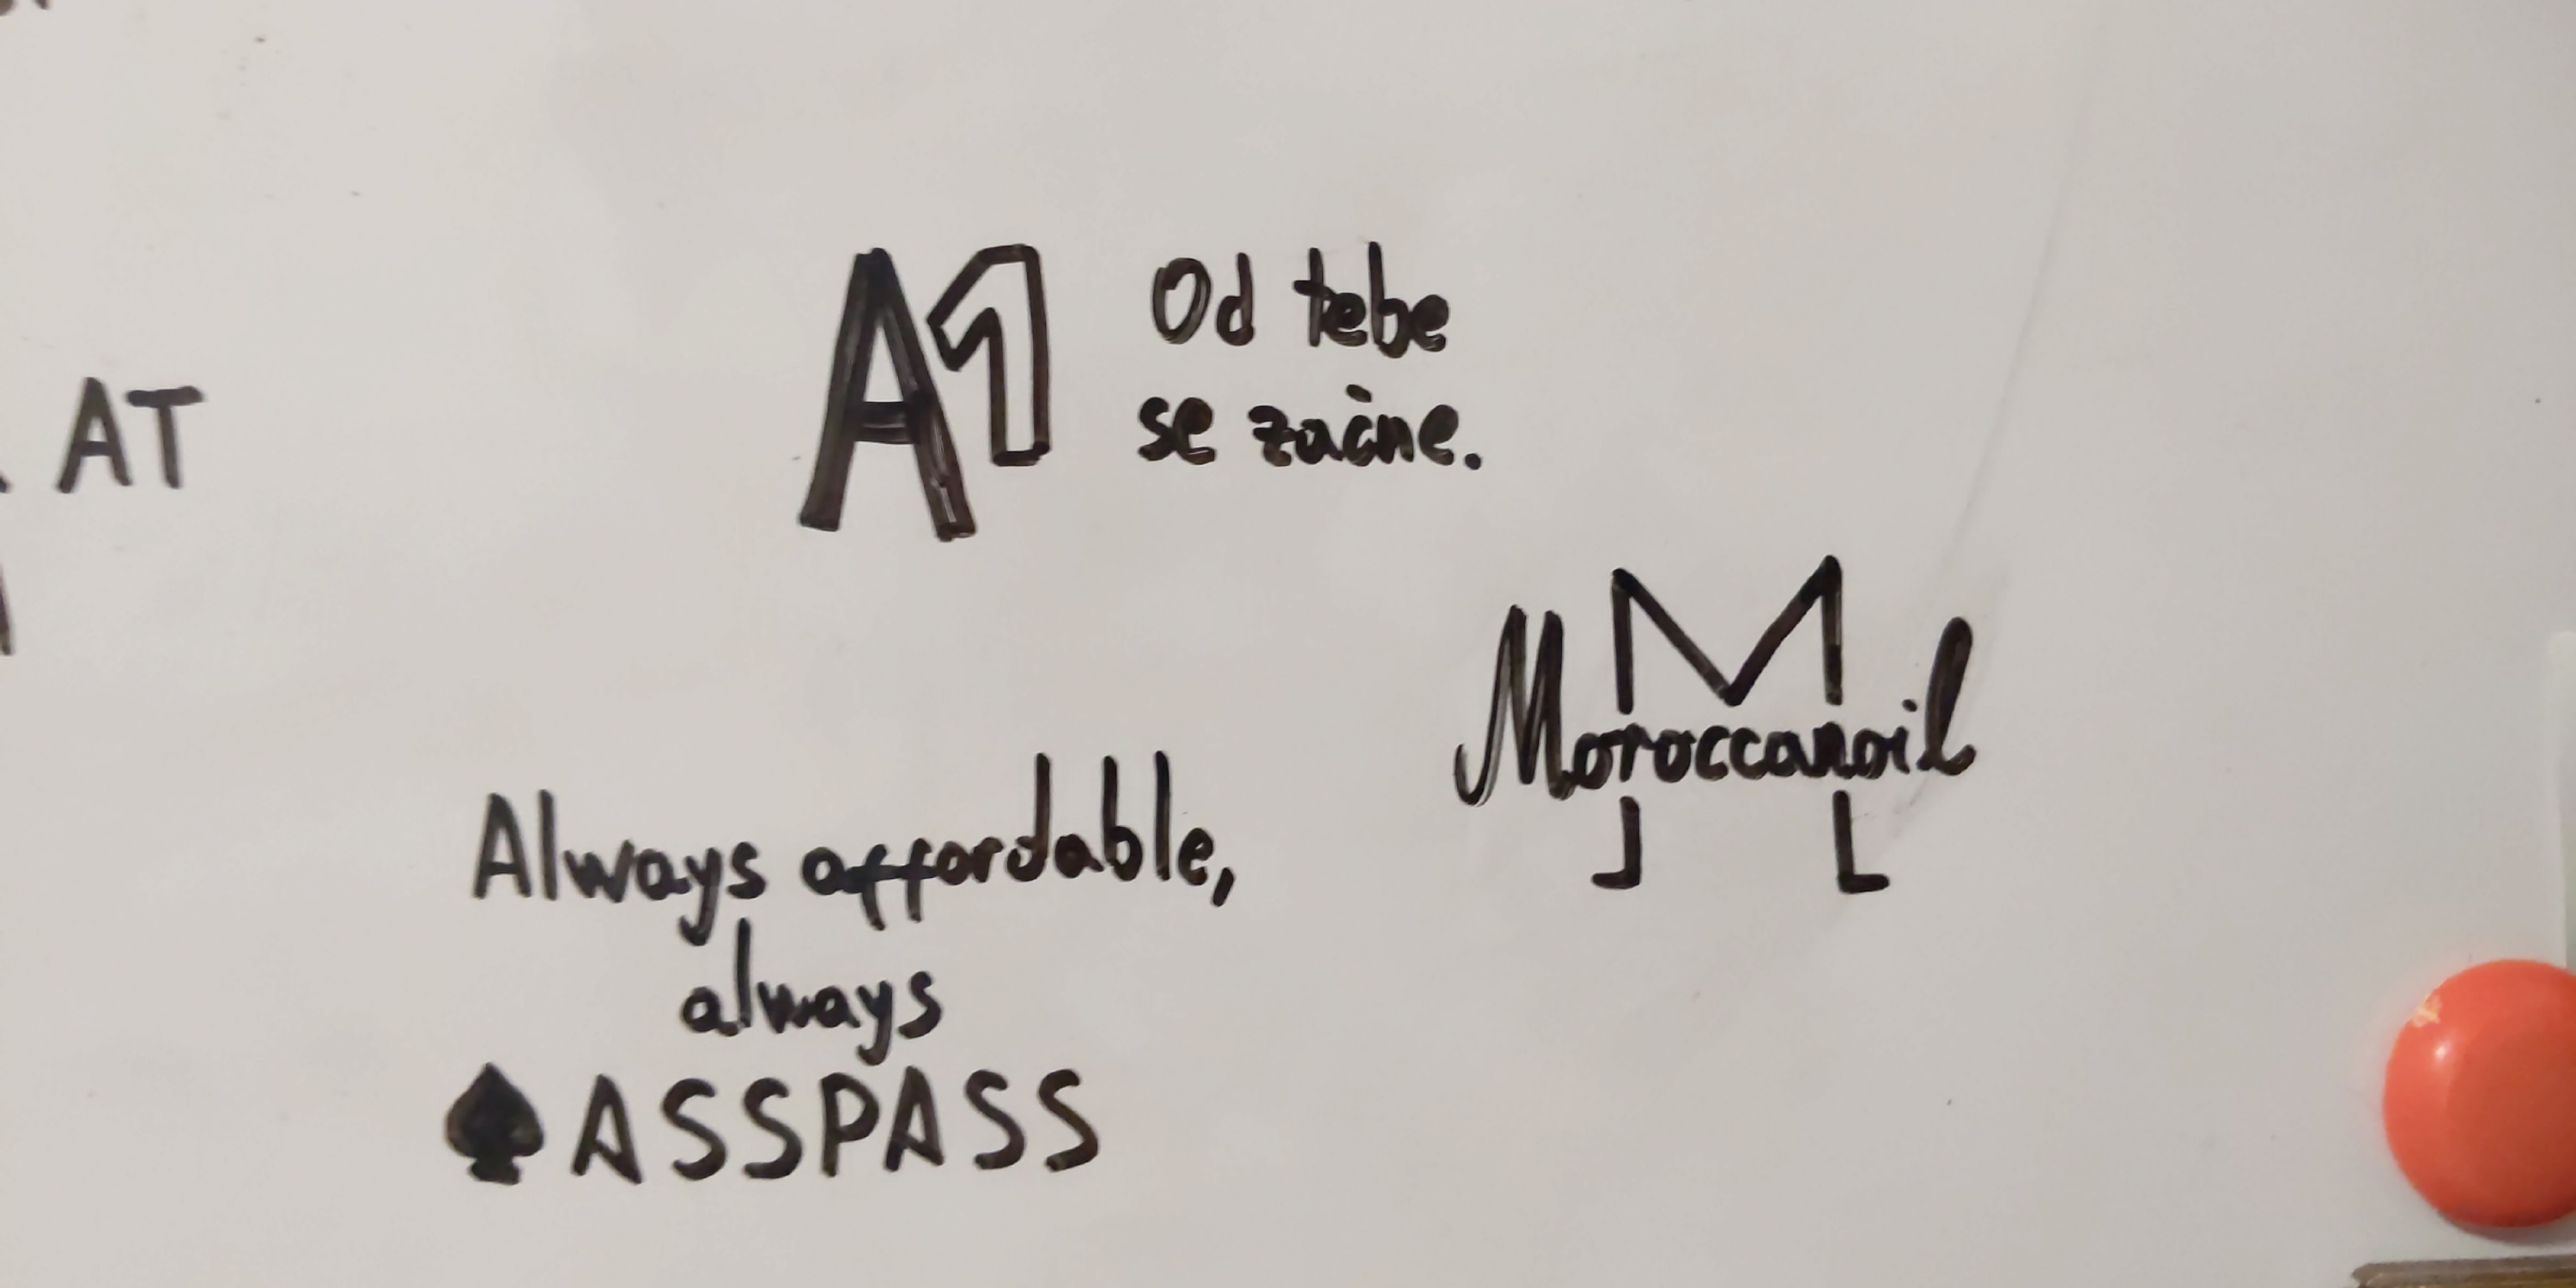 AT
A1
Od tebe
se začne.
M
Moroccanoil
Always affordable,
always
♠ASSPASS